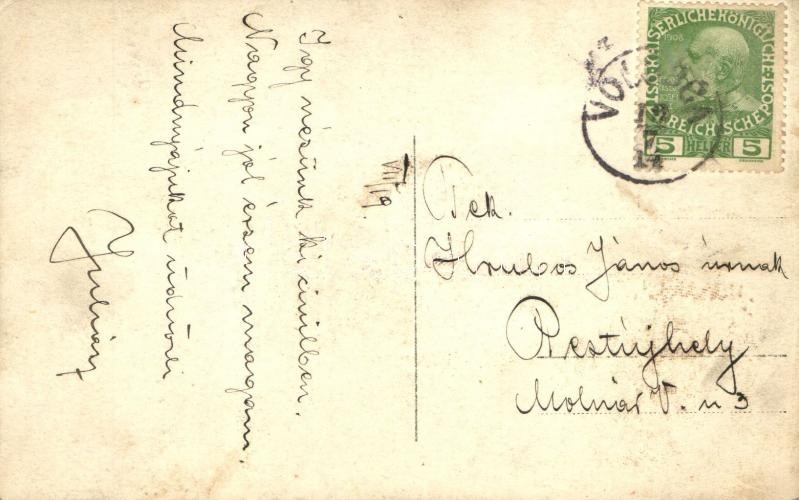 Igy nézünk ki civilben.
Nagyon jól érzem magam.
Mindnyájukat üdvözli
Gyulány
VII/19
Tek.
Hrubos János úrnak
Pestújhely
Molnár V. u 3
KAISERLICHE KÖNIGLICHE ÖSTERREICHISCHE POST
1908
5 HELLER 5
19
7
14